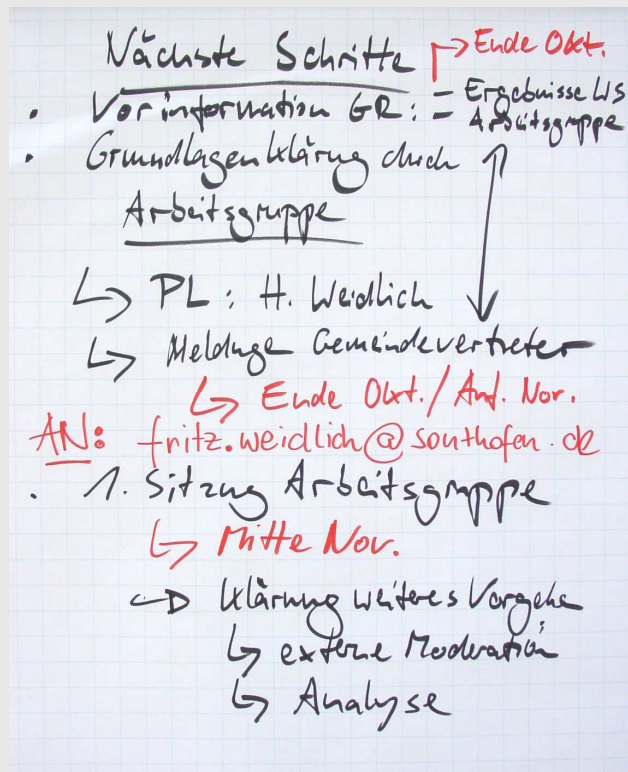 Nächste Schritte → Ende Okt.
• Vorinformation GR: = Ergebnisse WS
= Arbeitsgruppe
• Grundlagenklärung durch
Arbeitsgruppe
↳ PL: H. Weidlich
↳ Meldunge Gemeindevertreter
↳ Ende Okt./Anf. Nov.
AN: fritz.weidlich@sonthofen.de
• 1. Sitzung Arbeitsgruppe
↳ Mitte Nov.
→ Klärung weiteres Vorgehe
↳ externe Moderation
↳ Analyse